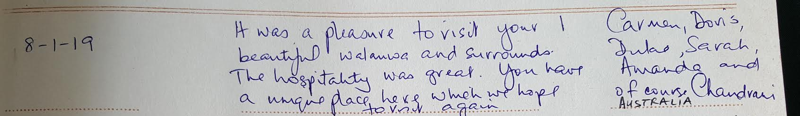 8-1-19
It was a pleasure to visit your
beautiful walauwa and surrounds.
The hospitality was great. You have
a unique place here which we hope
to visit again
Carmen, Doris,
Sarah,
Amanda and
of course Chandrani
AUSTRALIA